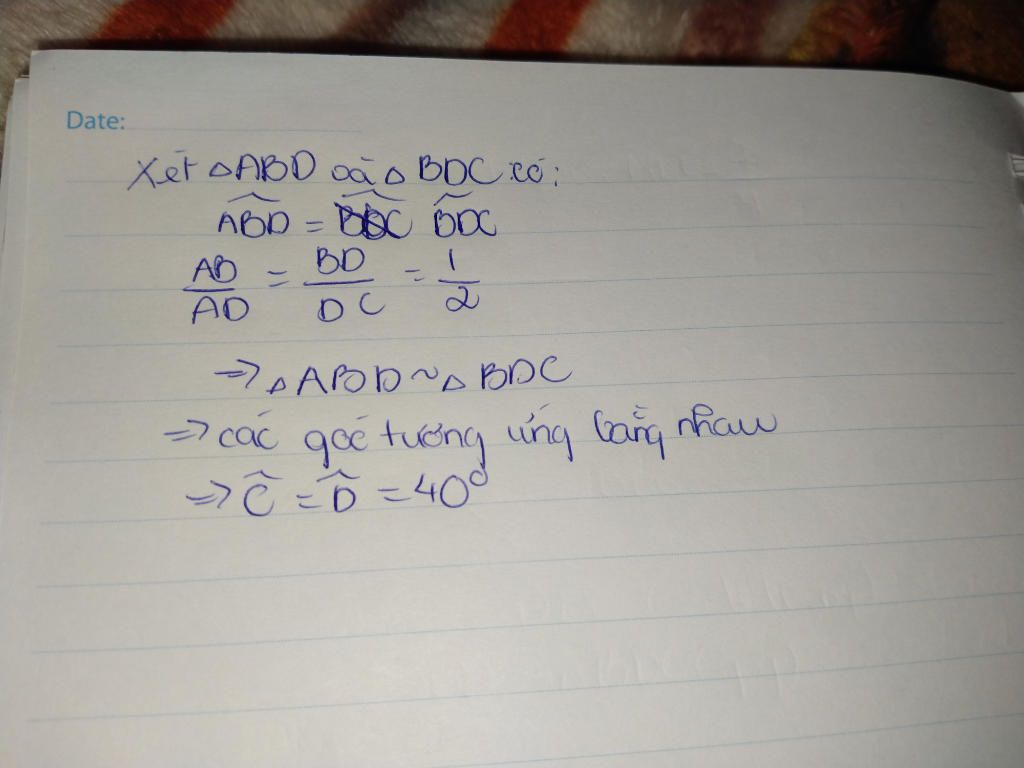 Date:
Xét △ABD và △BDC có:
$\widehat{ABD}$ = $\widehat{BDC}$
$\frac{AB}{AD} = \frac{BD}{DC} = \frac{1}{2}$
⇒ △ABD ~ △BDC
⇒ các góc tương ứng bằng nhau
⇒ $\widehat{C}$ = $\widehat{D}$ = 40°